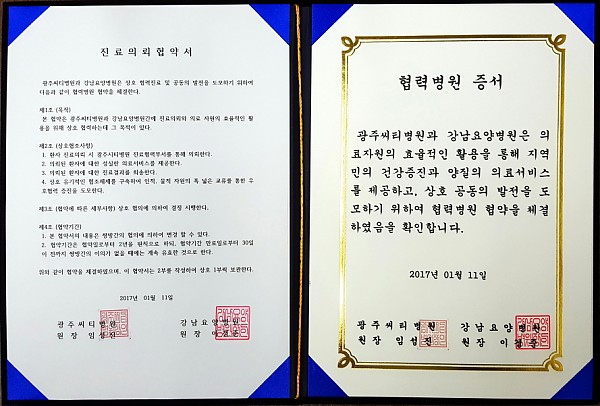 진료의뢰협약서
광주씨티병원과 강남요양병원은 상호 협력진료 및 공동의 발전을 도모하기 위하여
다음과 같이 협력병원 협약을 체결한다.
제1조 (목적)
본 협약은 광주씨티병원과 강남요양병원간에 진료의뢰와 의료 자원의 효율적인 활
용을 위해 상호 협력하는데 그 목적이 있다.
제2조 (상호협조사항)
1. 환자 진료의뢰 시 광주씨티병원 진료협력부서를 통해 의뢰한다.
2. 의뢰된 환자에 대한 성실한 의료서비스를 제공한다.
3. 의뢰된 환자에 대한 진료결과를 회송한다.
4. 상호 유기적인 협조체제를 구축하여 인적, 물적 자원의 폭 넓은 교류를 통한 우
호협력 증진을 도모한다.
제3조 (협약에 따른 세부사항) 상호 협의에 의하여 결정 시행한다.
제4조 (협약기간)
1. 본 협약서의 내용은 쌍방간의 협의에 의하여 변경 할 수 있다.
2. 협약기간은 협약일로부터 2년을 원칙으로 하되, 협약기간 만료일로부터 30일
이 전까지 쌍방간의 이의가 없을 때에는 계속 유효한 것으로 한다.
위와 같이 협약을 체결하였으며, 이 협약서는 2부를 작성하여 상호 1부씩 보관한다.
2017년 01월 11일
광주씨티병원 강남요양병원
원장 임성진 원장 이
협력병원 증서
광주씨티병원과 강남요양병원은 의
료자원의 효율적인 활용을 통해 지역
민의 건강증진과 양질의 의료서비스
를 제공하고, 상호 공동의 발전을 도
모하기 위하여 협력병원 협약을 체결
하였음을 확인합니다.
2017년 01월 11일
광주씨티병원 강남요양병원
원장 임성진 원장 이